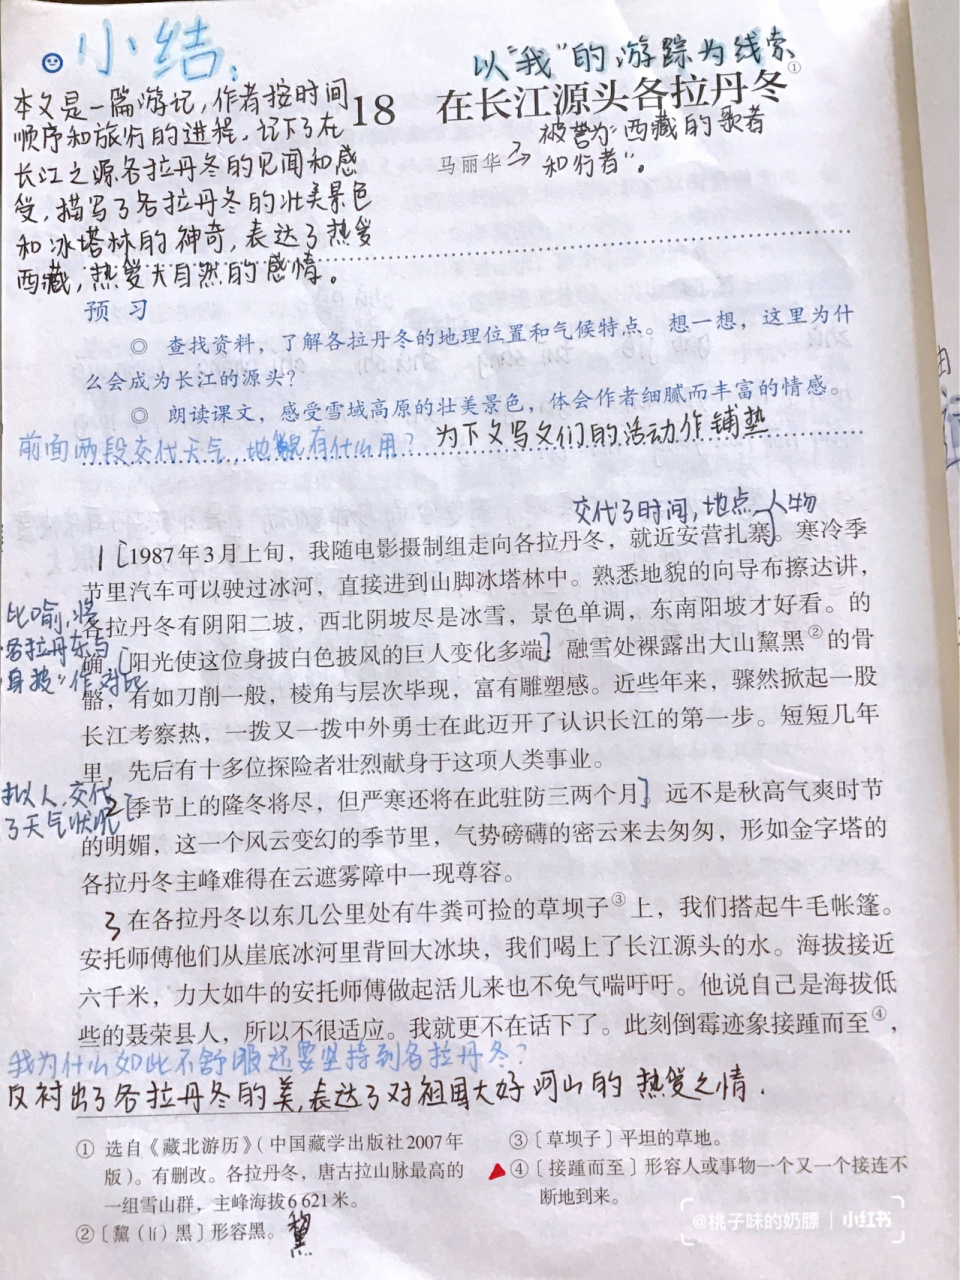 小结:
以“我”的游踪为线索
本文是一篇游记,作者按时间
顺序和旅行的进程,记下了在
长江之源各拉丹冬的见闻和感
受,描写了各拉丹冬的壮美景色
和冰塔林的神奇,表达了热爱
西藏,热爱大自然的感情。
18 在长江源头各拉丹冬①
马丽华
被誉为“西藏的歌者
和行者”。
预 习
◎ 查找资料,了解各拉丹冬的地理位置和气候特点。想一想,这里为什
么会成为长江的源头?
◎ 朗读课文,感受雪域高原的壮美景色,体会作者细腻而丰富的情感。
前面两段交代天气,地貌有什么用? 为下文写文们的活动作铺垫
交代了时间,地点,人物
1 [1987年3月上旬,我随电影摄制组走向各拉丹冬,就近安营扎寨]。寒冷季
节里汽车可以驶过冰河,直接进到山脚冰塔林中。熟悉地貌的向导布擦达讲,
各拉丹冬有阴阳二坡,西北阴坡尽是冰雪,景色单调,东南阳坡才好看。的
确,[阳光使这位身披白色披风的巨人变化多端]:融雪处裸露出大山黧黑②的骨
骼,有如刀削一般,棱角与层次毕现,富有雕塑感。近些年来,骤然掀起一股
长江考察热,一拨又一拨中外勇士在此迈开了认识长江的第一步。短短几年
里,先后有十多位探险者壮烈献身于这项人类事业。
比喻,将
各拉丹冬与
“身披”作对比
2 [季节上的隆冬将尽,但严寒还将在此驻防三两个月]。远不是秋高气爽时节
的明媚,这一个风云变幻的季节里,气势磅礴的密云来去匆匆,形如金字塔的
各拉丹冬主峰难得在云遮雾障中一现尊容。
拟人,交代
了天气状况
3 在各拉丹冬以东几公里处有牛粪可捡的草坝子③上,我们搭起牛毛帐篷。
安托师傅他们从崖底冰河里背回大冰块,我们喝上了长江源头的水。海拔接近
六千米,力大如牛的安托师傅做起活儿来也不免气喘吁吁。他说自己是海拔低
些的聂荣县人,所以不很适应。我就更不在话下了。此刻倒霉迹象接踵而至④,
我为什么如此不舒服还要坚持到各拉丹冬?
反衬出了各拉丹冬的美,表达了对祖国大好河山的热爱之情.
① 选自《藏北游历》(中国藏学出版社2007年
版)。有删改。各拉丹冬,唐古拉山脉最高的
一组雪山群,主峰海拔6 621米。
② 〔黧(lí)黑〕形容黑。 黧
③ 〔草坝子〕平坦的草地。
④ 〔接踵而至〕形容人或事物一个又一个接连不
断地到来。
@桃子味的奶膘 | 小红书